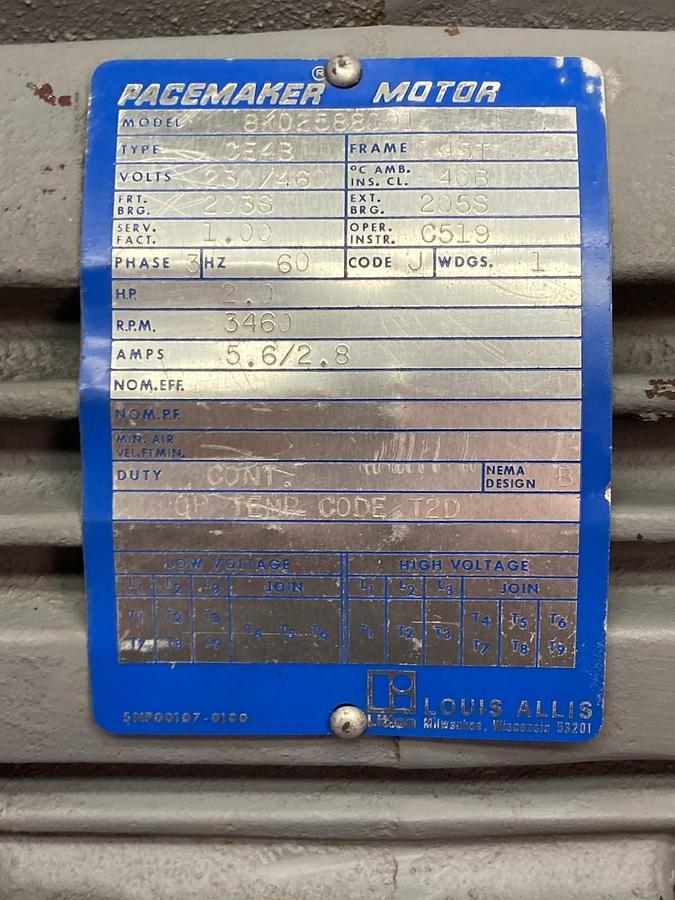 ®
PACEMAKER MOTOR
MODEL
TYPE C54B FRAME
VOLTS 230/460 °C AMB. INS. CL. 40B
FRT. BRG. 203S EXT. BRG. 205S
SERV. FACT. 1.00 OPER. INSTR. C519
PHASE 3 HZ 60 CODE J WDGS. 1
H.P. 2.0
R.P.M. 3460
AMPS 5.6/2.8
NOM. EFF.
NOM. P.F.
MIN. AIR VEL. FT/MIN.
DUTY CONT. NEMA DESIGN B
OP TEMP CODE T2D
LOW VOLTAGE HIGH VOLTAGE
L1 L2 L3 JOIN L1 L2 L3 JOIN
T1 T2 T3 T4 T5 T6 T1 T2 T3 T4 T5 T6
T7 T8 T9 T7 T8 T9
Litton LOUIS ALLIS
Milwaukee, Wisconsin 53201
5NP00107-0100